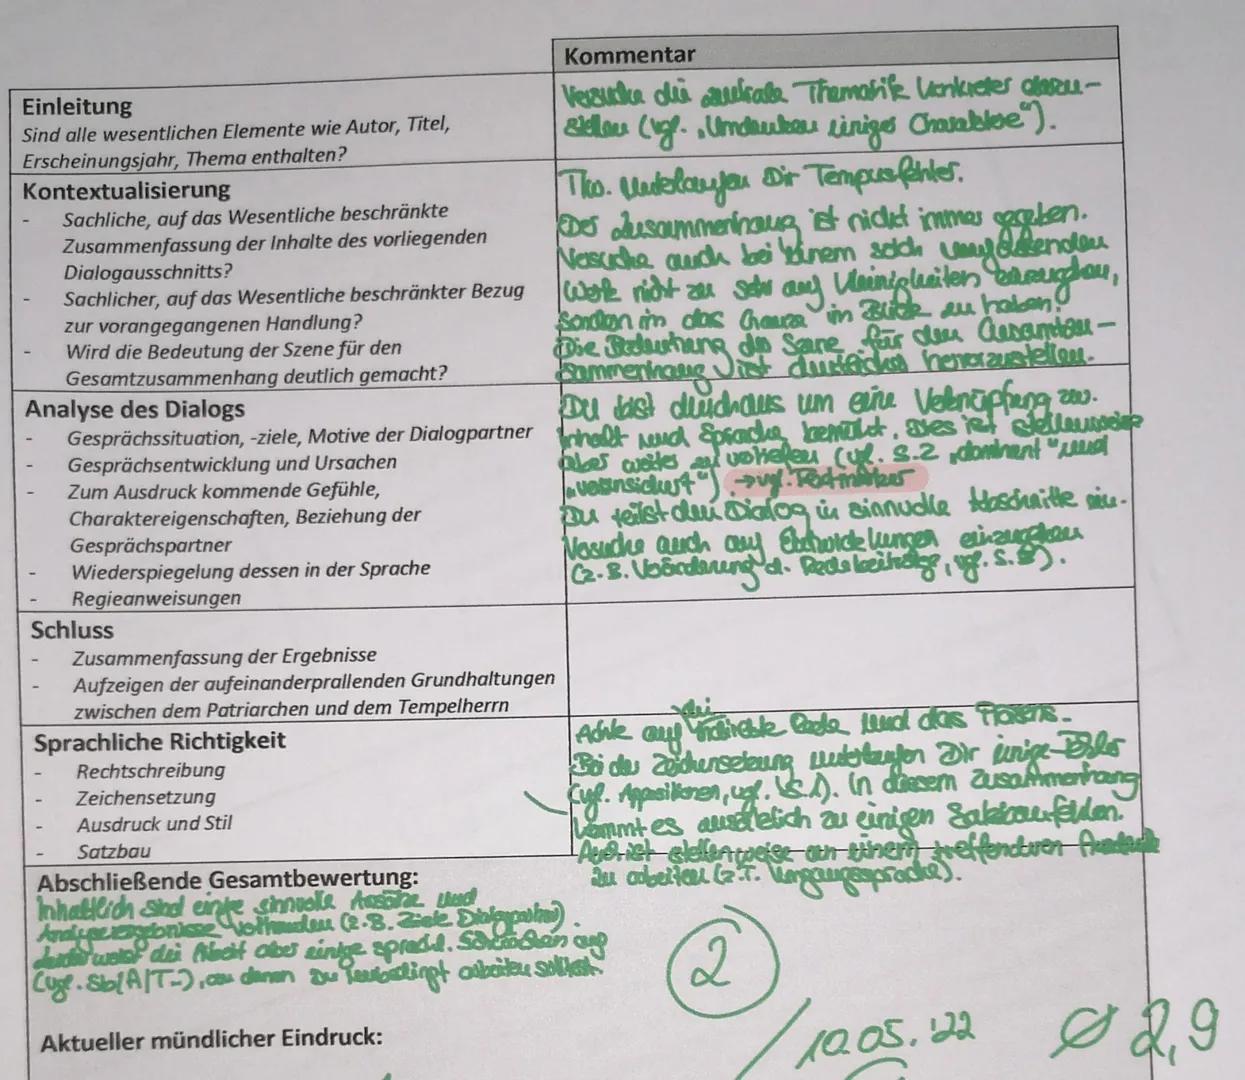 Kommentar
Einleitung
Sind alle wesentlichen Elemente wie Autor, Titel,
Erscheinungsjahr, Thema enthalten?
Versuche die zentrale Thematik konkreter darzu-
stellen (vgl. „Umdenken einiger Charaktere").
Kontextualisierung
- Sachliche, auf das Wesentliche beschränkte
Zusammenfassung der Inhalte des vorliegenden
Dialogausschnitts?
- Sachlicher, auf das Wesentliche beschränkter Bezug
zur vorangegangenen Handlung?
- Wird die Bedeutung der Szene für den
Gesamtzusammenhang deutlich gemacht?
Tw. unterlaufen Dir Tempusfehler.
Der Zusammenhang ist nicht immer gegeben.
Versuche auch bei einem solch umfassenden
Werk nicht zu sehr auf Kleinigkeiten einzugehen,
sondern das Ganze im Blick zu haben!
Die Bedeutung der Szene für den Gesamtzu-
sammenhang ist herauszustellen.
Analyse des Dialogs
- Gesprächssituation, -ziele, Motive der Dialogpartner
- Gesprächsentwicklung und Ursachen
- Zum Ausdruck kommende Gefühle,
Charaktereigenschaften, Beziehung der
Gesprächspartner
- Wiederspiegelung dessen in der Sprache
- Regieanweisungen
Du bist durchaus um eine Verknüpfung zw.
Inhalt und Sprache bemüht. Dies ist stellenweise
aber weiter zu vertiefen (vgl. S.2 „dominant" und
„verunsichert") → vgl. Textmarker
Du teilst den Dialog in sinnvolle Abschnitte ein.
Versuche auch auf Entwicklungen einzugehen
(z.B. d. Redebeiträge, vgl. S.3).
Schluss
- Zusammenfassung der Ergebnisse
- Aufzeigen der aufeinanderprallenden Grundhaltungen
zwischen dem Patriarchen und dem Tempelherrn
Sprachliche Richtigkeit
- Rechtschreibung
- Zeichensetzung
- Ausdruck und Stil
- Satzbau
Achte auf die indirekte Rede und das Präsens.
Bei der Zeichensetzung unterlaufen Dir einige Fehler
(vgl. Appositionen, vgl. S.1). In diesem Zusammenhang
kommt es zu einigen Satzbaufehlern.
Auch ist stellenweise an einem treffenderen Ausdruck
zu arbeiten (z.T. Umgangssprache).
Abschließende Gesamtbewertung:
Inhaltlich sind einige sinnvolle Ansätze und
Analyseergebnisse vorhanden (z.B. Ziele Dialogpartner).
weist die Arbeit aber einige sprachl. Schwächen auf
(vgl. Sb/A/T-), an denen Du unbedingt arbeiten solltest.
2
Aktueller mündlicher Eindruck:
10.05.'22
Ø 2,9